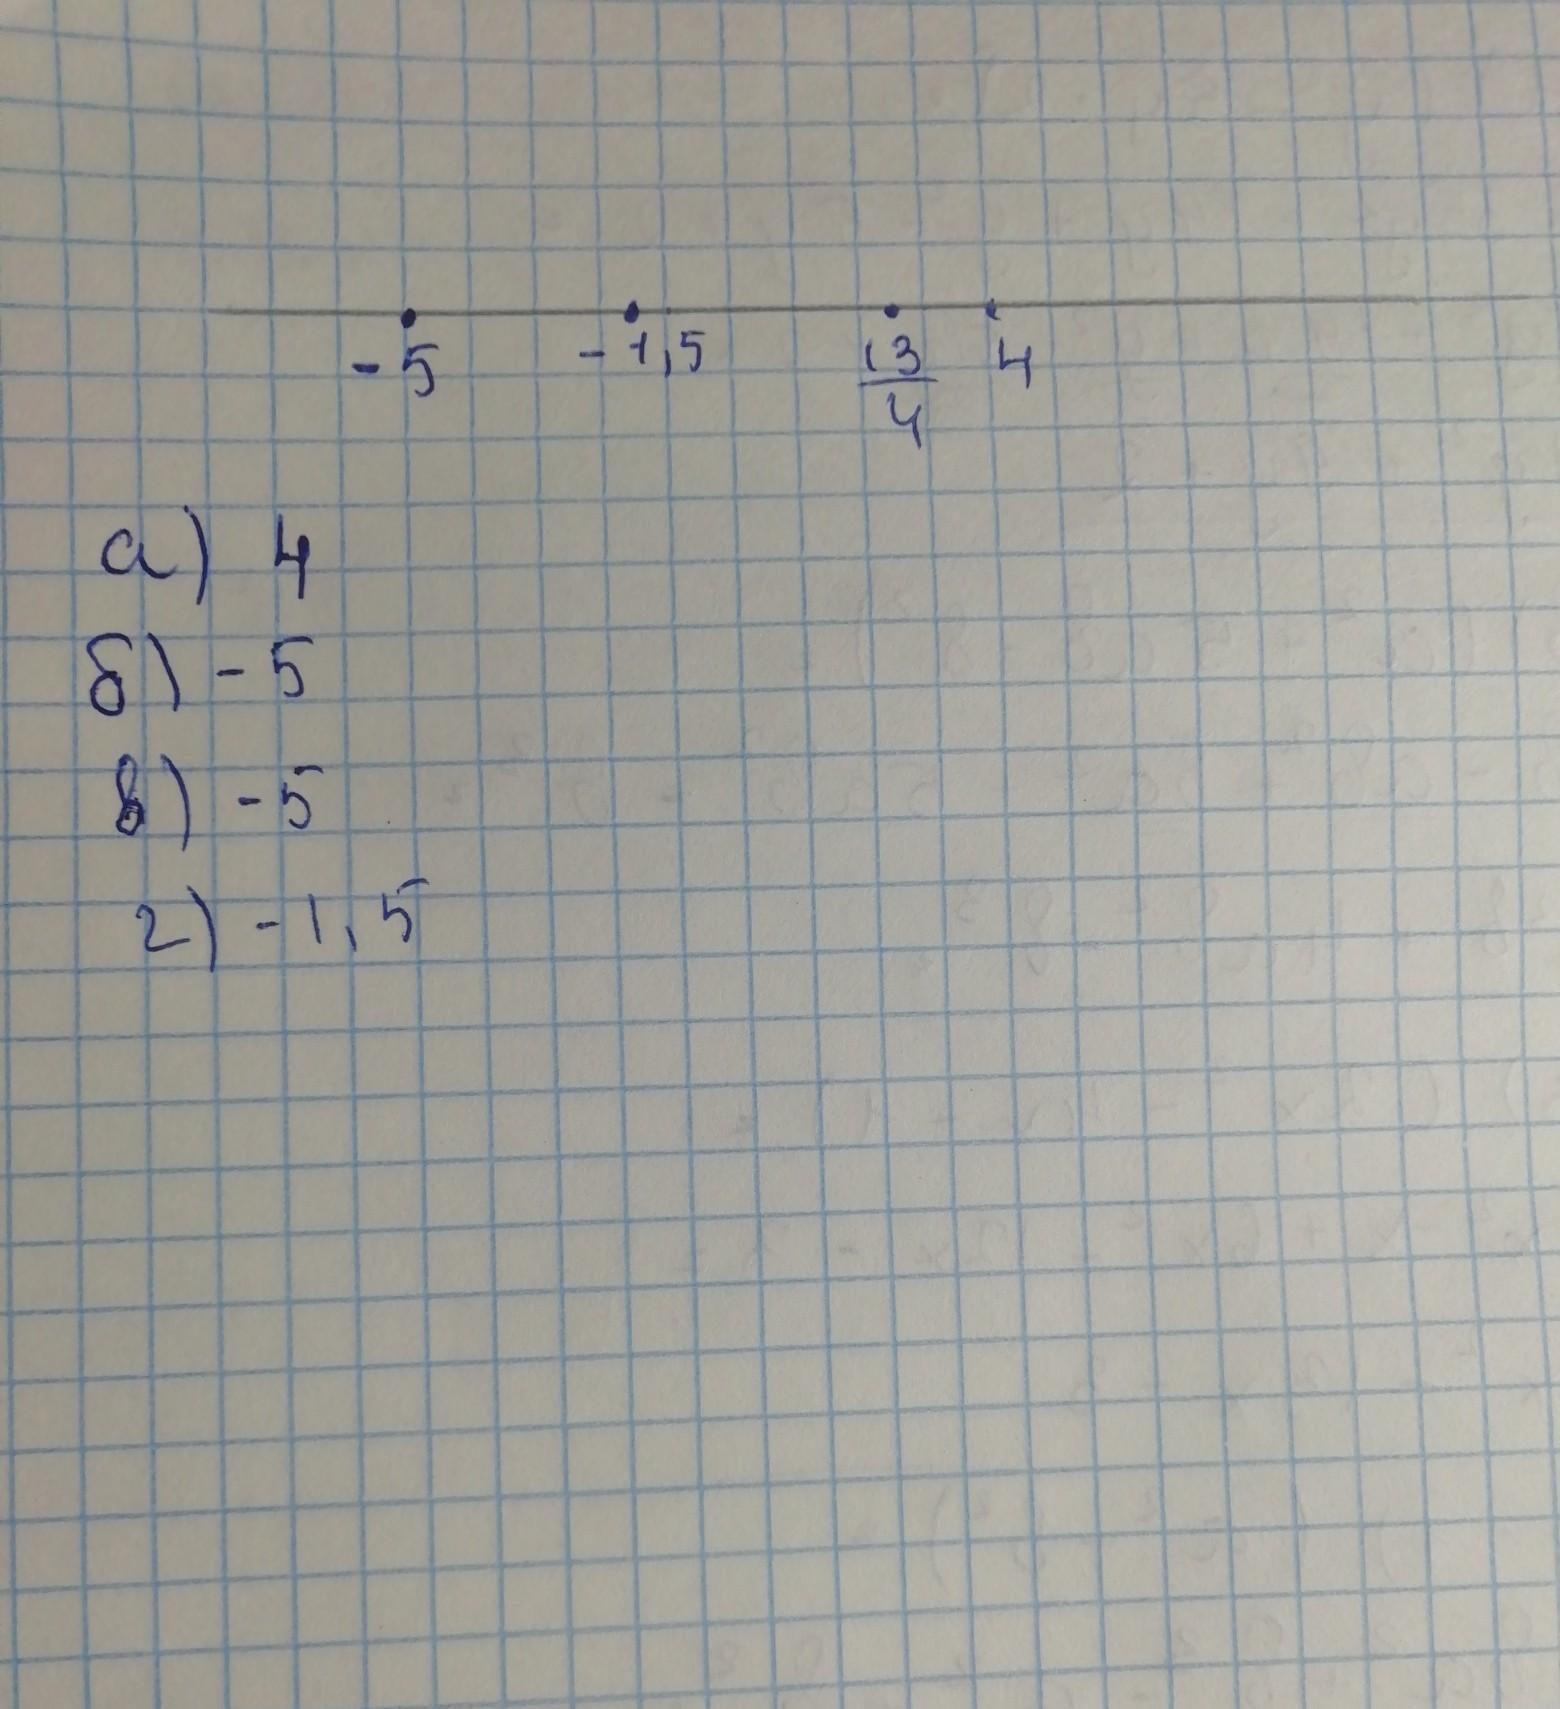 -5 -1,5 13/4 4
а) 4
б) -5
в) -5
г) -1,5